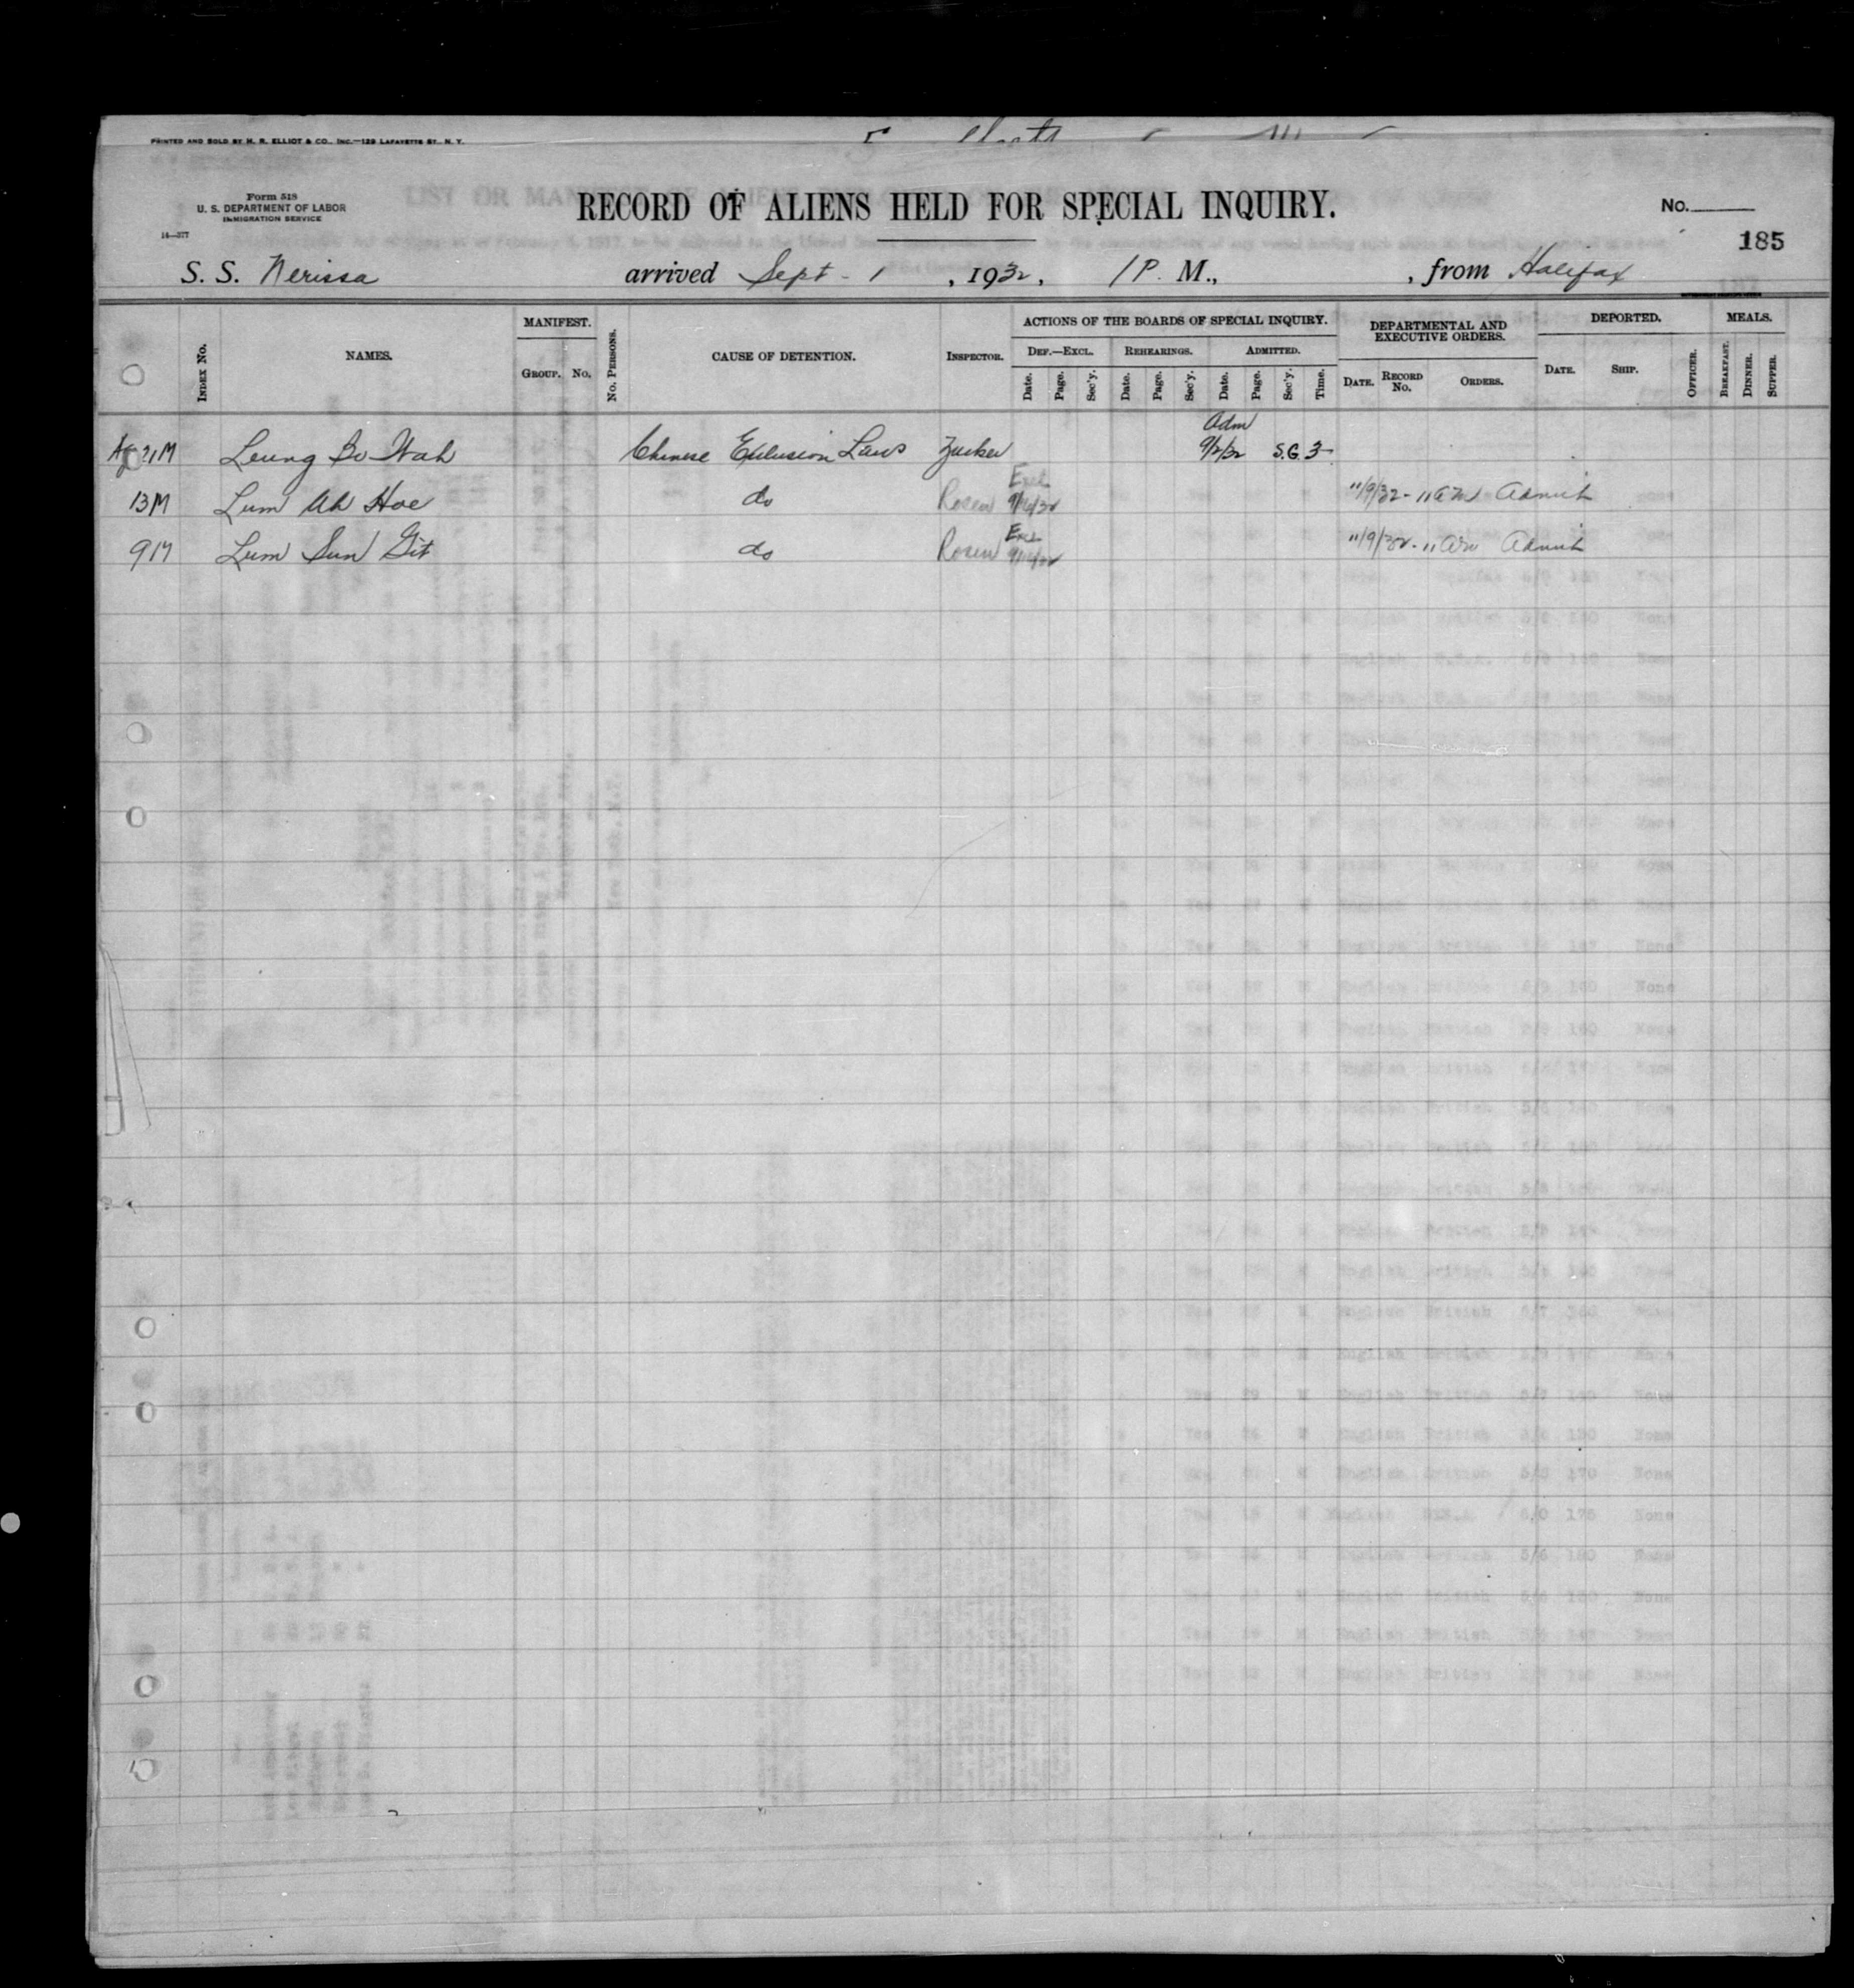 PRINTED AND SOLD BY H. R. ELLIOT & CO., INC.—129 LAFAYETTE ST., N. Y.
Form 518
U. S. DEPARTMENT OF LABOR
IMMIGRATION SERVICE
14—377
RECORD OF ALIENS HELD FOR SPECIAL INQUIRY.
No.
185
S. S. Nerissa arrived Sept - 1, 1932, 1 P. M., , from Halifax
INDEX No. NAMES. MANIFEST. GROUP. No. No. PERSONS. CAUSE OF DETENTION. INSPECTOR. ACTIONS OF THE BOARDS OF SPECIAL INQUIRY. DEF.—EXCL. Date. Page. Sec'y. REHEARINGS. Date. Page. Sec'y. ADMITTED. Date. Page. Sec'y. Time. DEPARTMENTAL AND EXECUTIVE ORDERS. DATE. RECORD No. ORDERS. DEPORTED. DATE. SHIP. OFFICER. MEALS. BREAKFAST. DINNER. SUPPER.
21M Leung Bo Wah Chinese Exclusion Laws Zucker Adm 9/2/32 S.G. 3
13M Lum Ah Hoe do Rosen Excl 9/16/32 11/9/32 - 11 AM Admit
9M Lum Sun Git do Rosen Excl 9/16/32 11/9/32 - 11 AM Admit